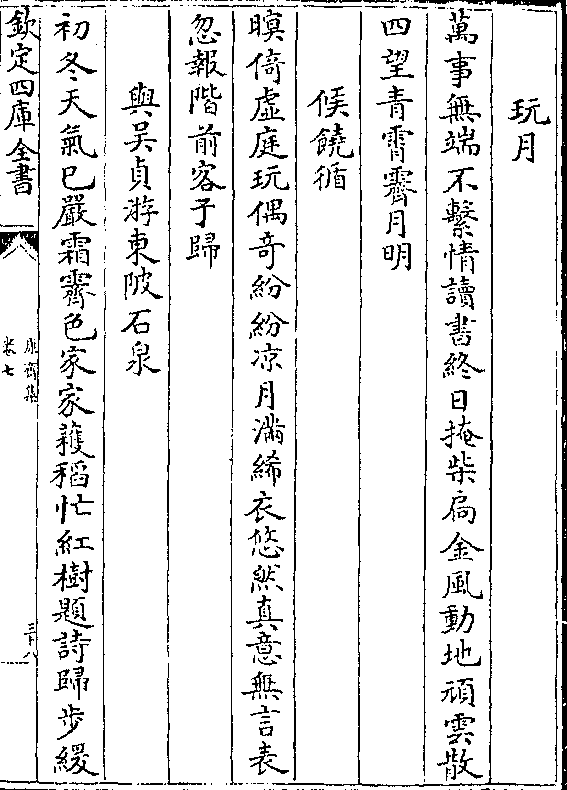 玩月
萬事無端不繫情讀書終日掩柴扃金風動地頑雲散
四望青霄霽月明
候饒循
暝倚虛庭玩偶奇紛紛凉月滿絺衣悠然真意無言表
忽報階前客子歸
與吴貞游東陂石泉
初冬天氣已嚴霜霽色家家穫稻忙紅樹題詩歸步緩
欽定四庫全書
康齋集
卷七
三十八